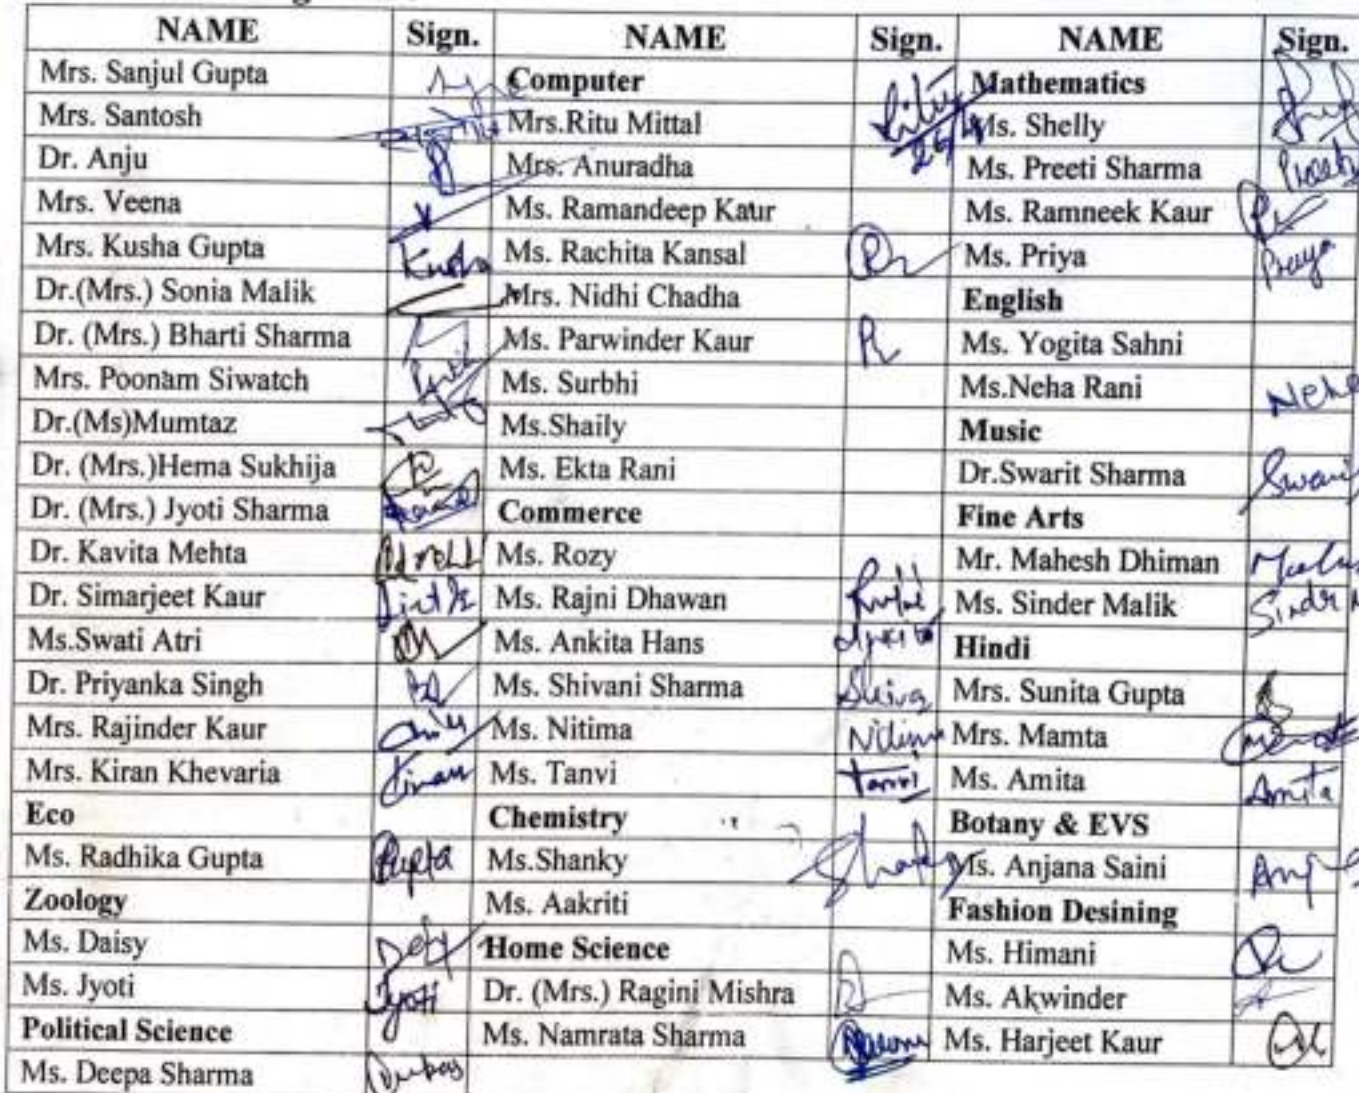 NAME Sign. NAME Sign. NAME Sign.
Mrs. Sanjul Gupta Computer Mathematics
Mrs. Santosh Mrs.Ritu Mittal Ritu Ms. Shelly
Dr. Anju Mrs. Anuradha Ms. Preeti Sharma Preeti
Mrs. Veena Ms. Ramandeep Kaur Ms. Ramneek Kaur
Mrs. Kusha Gupta Kusha Ms. Rachita Kansal Ms. Priya Priya
Dr.(Mrs.) Sonia Malik Mrs. Nidhi Chadha English
Dr. (Mrs.) Bharti Sharma Ms. Parwinder Kaur Ms. Yogita Sahni
Mrs. Poonam Siwatch Ms. Surbhi Ms.Neha Rani Neha
Dr.(Ms)Mumtaz Ms.Shaily Music
Dr. (Mrs.)Hema Sukhija Ms. Ekta Rani Dr.Swarit Sharma
Dr. (Mrs.) Jyoti Sharma Commerce Fine Arts
Dr. Kavita Mehta Ms. Rozy Mr. Mahesh Dhiman
Dr. Simarjeet Kaur Ms. Rajni Dhawan Ms. Sinder Malik
Ms.Swati Atri Ms. Ankita Hans Hindi
Dr. Priyanka Singh Ms. Shivani Sharma Mrs. Sunita Gupta
Mrs. Rajinder Kaur Ms. Nitima Mrs. Mamta
Mrs. Kiran Khevaria Kiran Ms. Tanvi Tanvi Ms. Amita Amita
Eco Chemistry Botany & EVS
Ms. Radhika Gupta Gupta Ms.Shanky Ms. Anjana Saini
Zoology Ms. Aakriti Fashion Desining
Ms. Daisy Home Science Ms. Himani
Ms. Jyoti Jyoti Dr. (Mrs.) Ragini Mishra Ms. Akwinder
Political Science Ms. Namrata Sharma Ms. Harjeet Kaur
Ms. Deepa Sharma